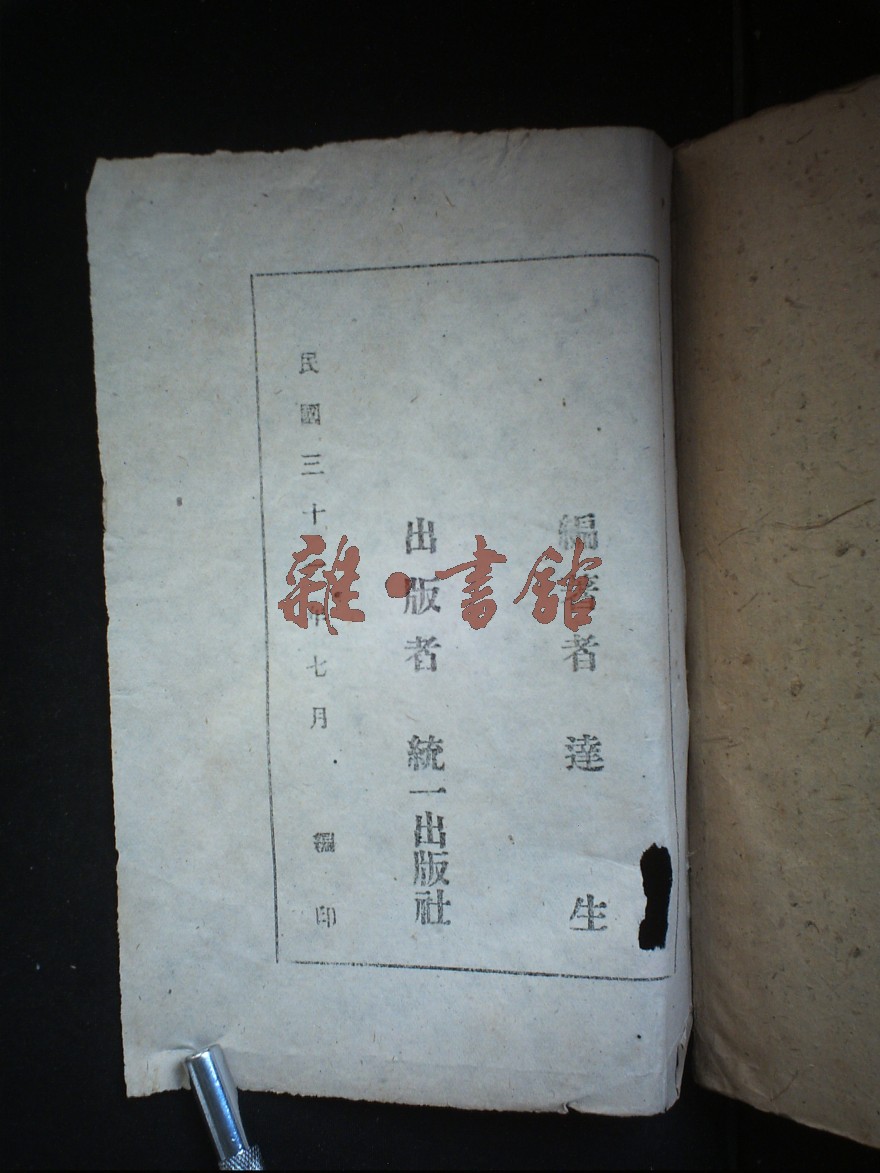 編著者 達生
出版者 統一出版社
民國三十 年七月 編印
雜·書館